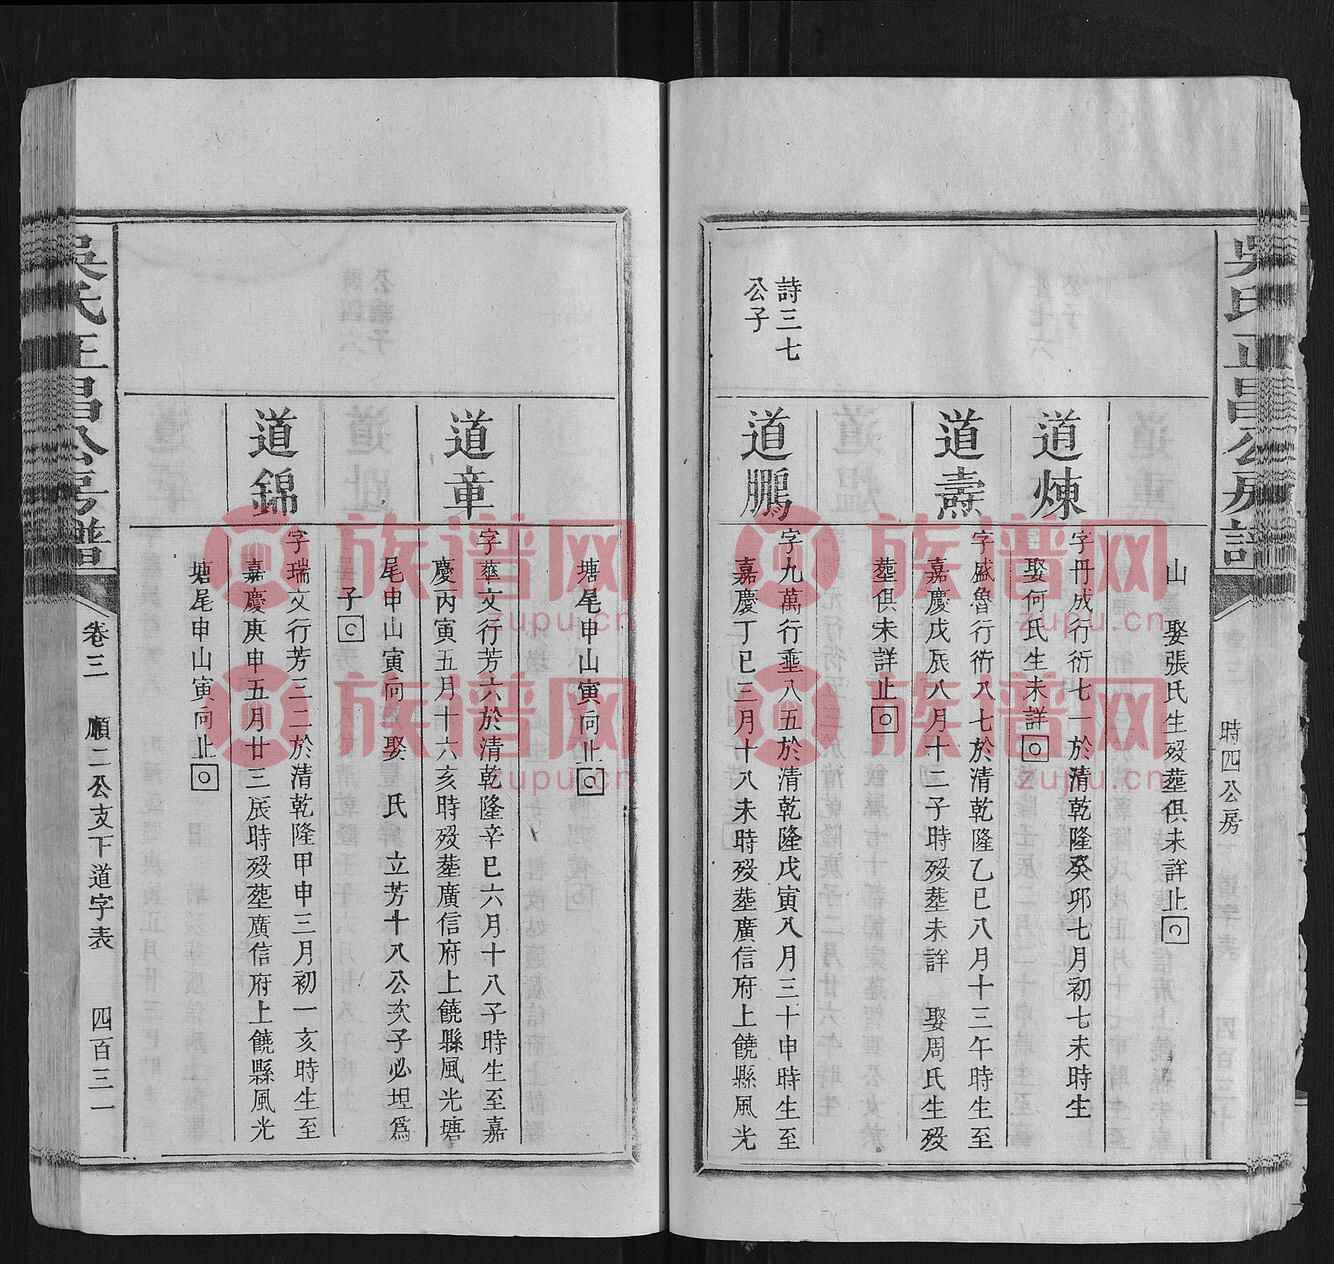 吳氏正昌公房譜
時四公房
山 娶張氏生歿塟俱未詳止
道煉
字丹成行衍七一於清乾隆癸邜七月初七未時生
娶何氏生未詳
道壽
字盛魯行衍八七於清乾隆乙巳八月十三午時生至
嘉慶戊辰八月十二子時歿塟未詳 娶周氏生歿
塟俱未詳止
詩三七
公子
道鵬
字九萬行垂八五於清乾隆戊寅八月三十申時生至
嘉慶丁巳三月十八未時歿塟廣信府上饒縣風光
塘尾申山寅向止
道章
字雄文行芳六於清乾隆辛巳六月十八子時生至嘉
慶丙寅五月十六亥時歿塟廣信府上饒縣風光塘
尾申山寅向 娶 氏 立芳十八公次子必坦為
子
道錦
字瑞文行芳三二於清乾隆甲申三月初一亥時生至
嘉慶庚申五月廿三辰時歿塟廣信府上饒縣風光
塘尾申山寅向止
吳氏正昌公房譜
卷三 順二公支下道字表 四百三一
族谱网
zupu.cn
族谱网
zupu.cn
族谱网
zupu.cn
族谱网
zupu.cn